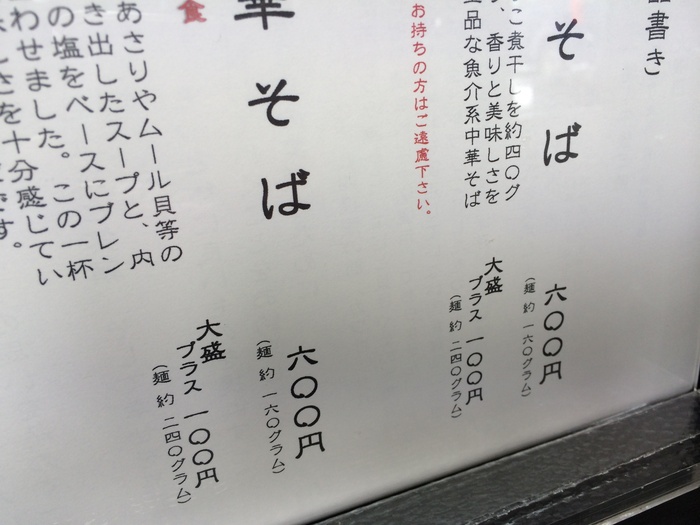 品書き
そば
こ煮干しを約四〇グ
、香りと美味しさを
品な魚介系中華そば
六〇〇円
(麺 約 一六〇グラム)
大盛
プラス 一〇〇円
(麺 約 二四〇グラム)
お持ちの方はご遠慮下さい。
華そば
六〇〇円
(麺 約 一六〇グラム)
大盛
プラス 一〇〇円
(麺 約 二四〇グラム)
食
あさりやムール貝等の
き出したスープと、内
の塩をベースにブレン
わせました。この一杯
さを十分感じてい
です。